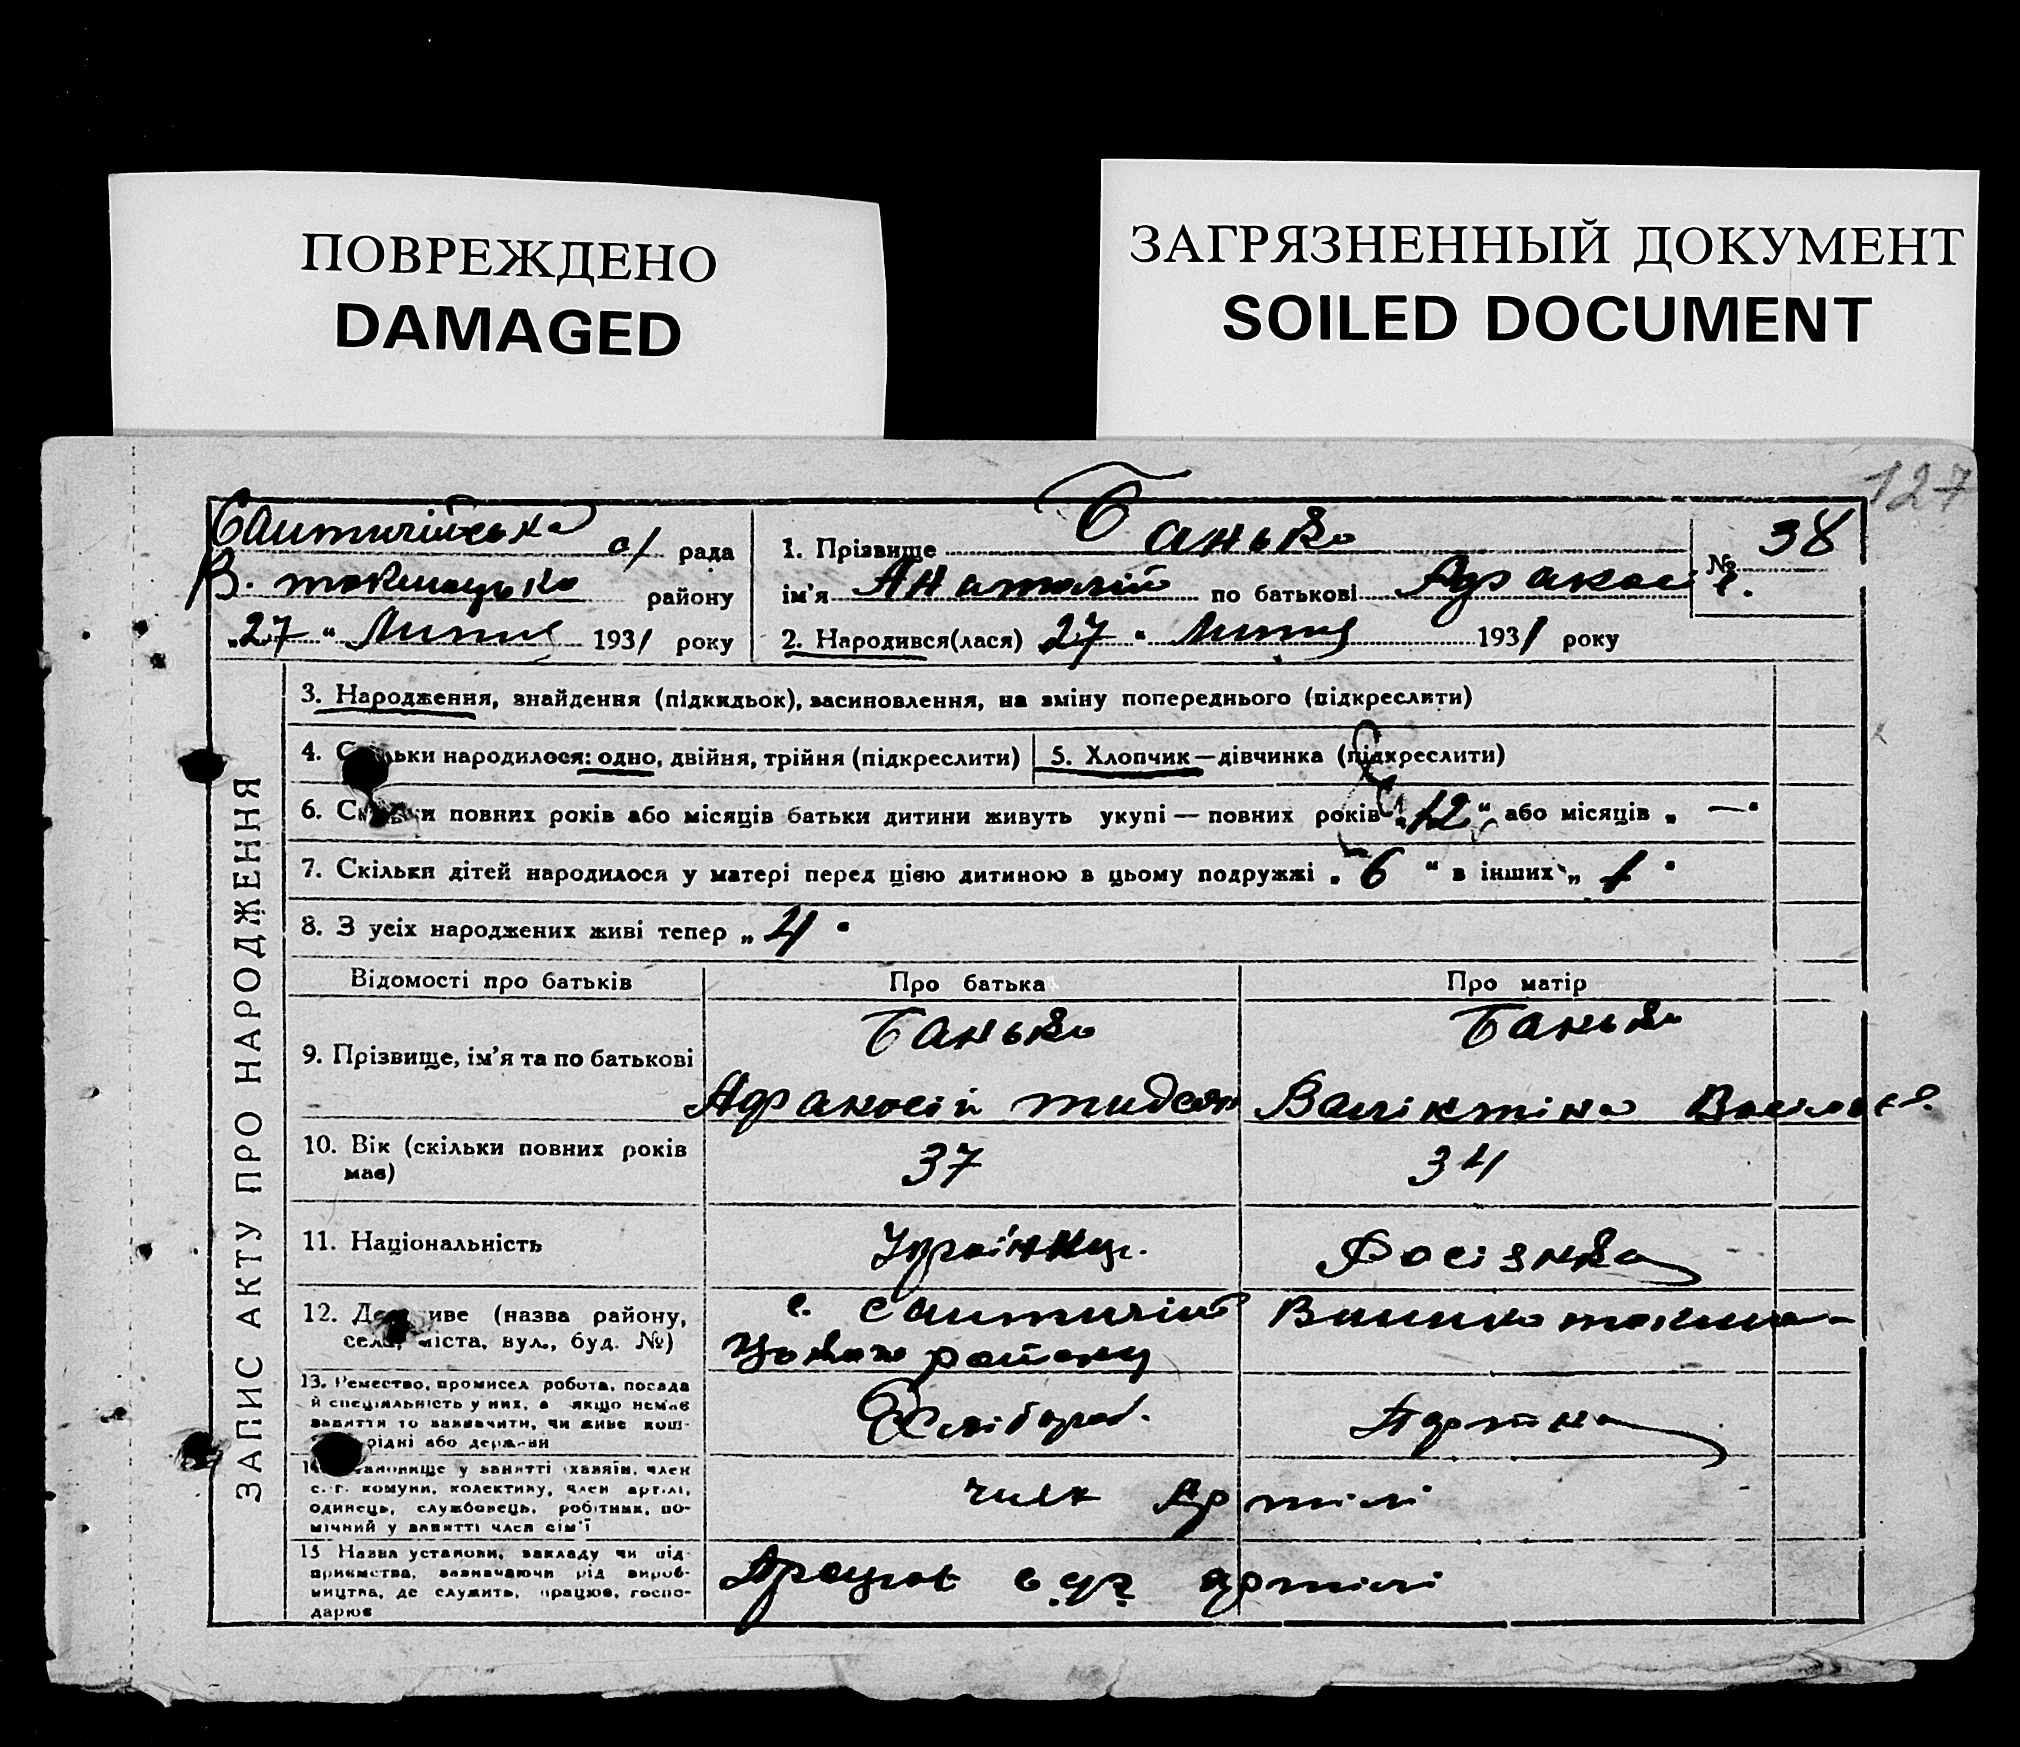 ПОВРЕЖДЕНО
DAMAGED
ЗАГРЯЗНЕННЫЙ ДОКУМЕНТ
SOILED DOCUMENT
127
с/ рада
В. токмацька району
„27“ Липня 1931 року
1. Прізвище Банько
ім'я Анатолій по батькові Афанас
№ 38
2. Народився(лася) 27 “ Липня 1931 року
ЗАПИС АКТУ ПРО НАРОДЖЕННЯ
3. Народження, знайдення (підкидьок), засиновлення, на зміну попереднього (підкреслити)
4. Скільки народилося: одно, двійня, трійня (підкреслити)
5. Хлопчик—дівчинка (підкреслити)
6. Скільки повних років або місяців батьки дитини живуть укупі — повних років „12“ або місяців „ —“
7. Скільки дітей народилося у матері перед цією дитиною в цьому подружжі „6“ в інших „1“
8. З усіх народжених живі тепер „4“
Відомості про батьків
Про батька
Про матір
9. Прізвище, ім'я та по батькові
Банько
Банько
10. Вік (скільки повних років має)
37
34
11. Національність
Українец.
Росіянка
12. Де живе (назва району, села, міста, вул., буд. №)
с.
району
13. Ремество, промисел робота, посада
й спеціяльність у них, а якщо немає
заняття то зазначити, чи живе кош-
рідні або держави
Хлібороб.
14. Становище у занятті хазяїн, член
с.-г. комуни, колективу, член артілі,
одинець, службовець, робітник, по-
мічний у занятті член сім'ї
член Артілі
15 Назва установи, закладу чи під-
приємства, зазначаючи рід вироб-
ництва, де служить, працює, госпо-
дарює
Працює в артілі